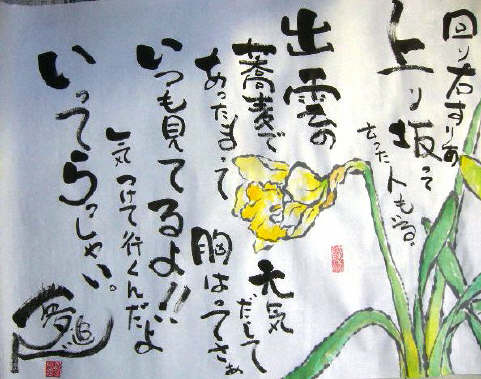 回り右すりゃあ
上り坂って
った人もゐる。
出雲の
蕎麦で
あったまって
元気
だして
胸はってさぁ
いつも見てるよ!!
気つけて行くんだよ
いってらっしゃい。